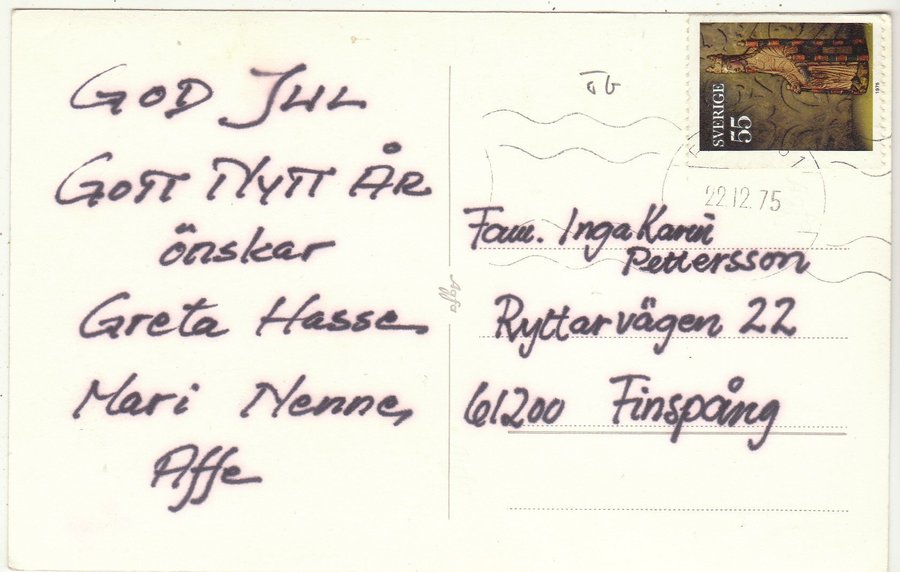 GOD JUL
GOTT NYTT ÅR
önskar
Greta Hasse
Mari Nenne
Affe
Agfa
SVERIGE
55
1975
22.12.75
Fam. Inga Karin
Pettersson
Ryttarvägen 22
61200 Finspång